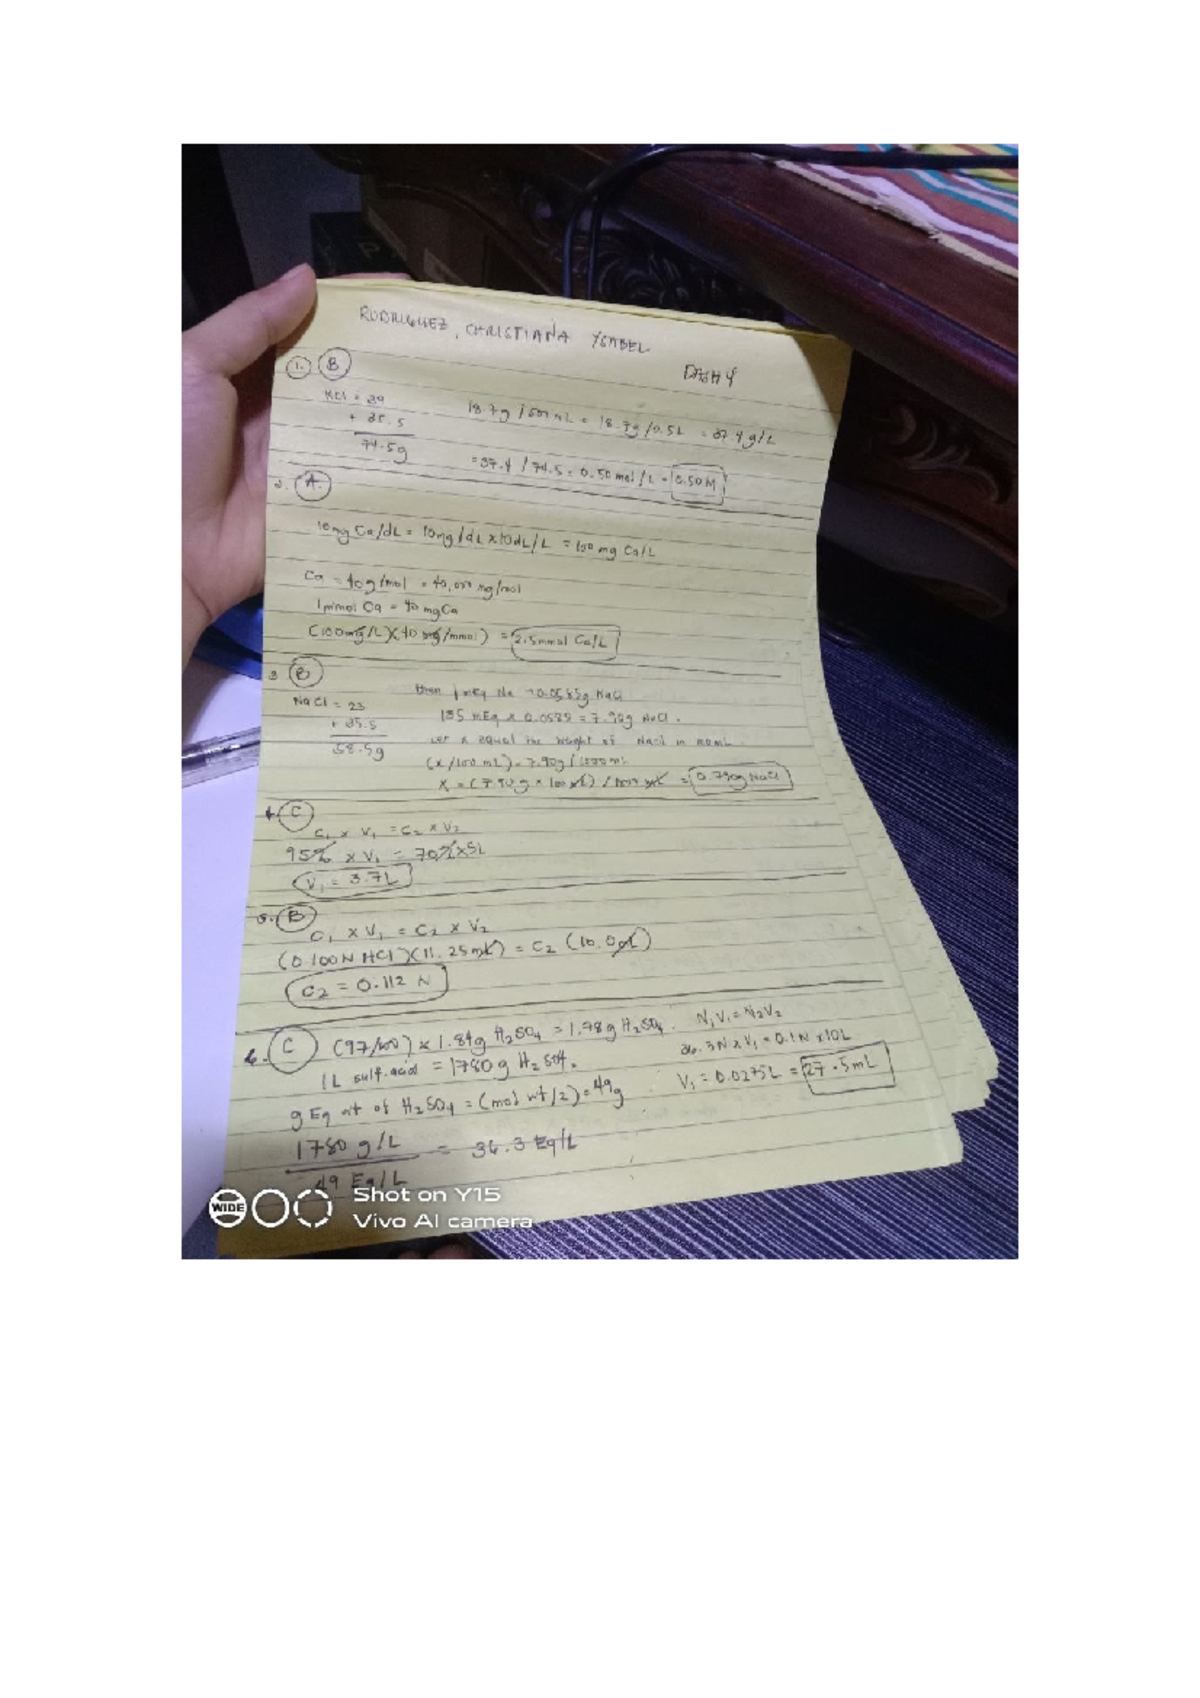 RODRIGUEZ, CHRISTIANA YSABEL
1. B
KCl = 39
+ 35.5
74.5g
18.7g / 500 mL = 18.7g / 0.5L = 37.4 g/L
= 37.4 / 74.5 = 0.50 mol / L = 0.50 M
2. A.
10mg Ca/dL = 10mg / dL x 10dL / L = 100 mg Ca/L
Ca = 40g/mol = 40,000 mg/mol
1 mmol Ca = 40 mg Ca
(100mg/L)(40 mg/mmol) = 2.5mmol Ca/L
3 B
NaCl = 23
+ 35.5
58.5g
1 mEq Na = 0.0585g NaCl
135 mEq x 0.0585 = 7.90g NaCl.
Let x equal the weight of NaCl in mL
(x/100 mL) = 7.90g / 1000 mL
X = (7.90 g x 100 mL) / 1000 mL = 0.790g NaCl
4. C
C1 x V1 = C2 x V2
95% x V1 = 70% x 5L
V1 = 3.7L
5. B
C1 x V1 = C2 x V2
(0.100N HCl)(11.25mL) = C2 (10.0mL)
C2 = 0.112 N
6. C (97/100) x 1.84g H2SO4 = 1.78g H2SO4.
1L sulf. acid = 1780 g H2SO4.
g Eq wt of H2SO4 = (mol wt/2) = 49g
1780 g/L = 36.3 Eq/L
49 Eq/L
N1V1 = N2V2
36.3N x V1 = 0.1N x 10L
V1 = 0.0275L = 27.5mL
WIDE
Shot on Y15
Vivo AI camera